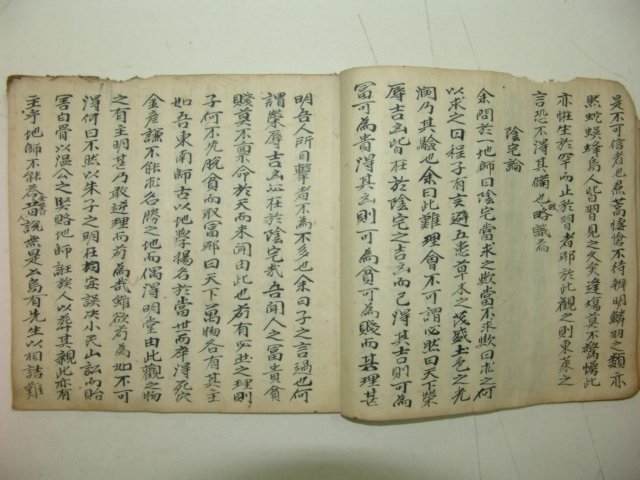 是不可信者也焄蒿悽愴不待辨明鱗羽之類亦
然蛇蜈蜂蠆人皆習見之久矣逢場莫不驚懼此
亦恠生於罕而止於習者耶於此觀之則東萊之
言恐不得其備也故略識焉
陰宅論
余問於一地師曰陰宅當求之歟當不求歟曰求之何
以求之曰程子有言避五患草木之茂盛土色之光
潤乃其驗也余曰此難理會不可謂必然曰天下榮
辱吉凶皆在於陰宅之吉凶而已得其吉則可爲
富可爲貴得其凶則可爲貧可爲賤而其理甚
明吾人所目擊者不爲不多也余曰子之言過也何
謂榮辱吉凶必在於陰宅哉吾聞人之富貴貧
賤莫不禀命於天而未聞由此也若有必然之理則
子何不先脫貧而取富耶曰天下萬物各有其主
如吾東南師古以地學揚名於當世而卒得死穴
金彦謙不能求名勝之地而偶得明堂由此觀之物
之有主明甚乃敢逆理而苟爲哉雖欲苟爲如不可
得何曰不然以朱子之明在
決小民山訟而貽
害白骨以溫公之賢賂地師誑族人以葬其親此亦有
主乎地師不能答
說無是公烏有先生以相詰難